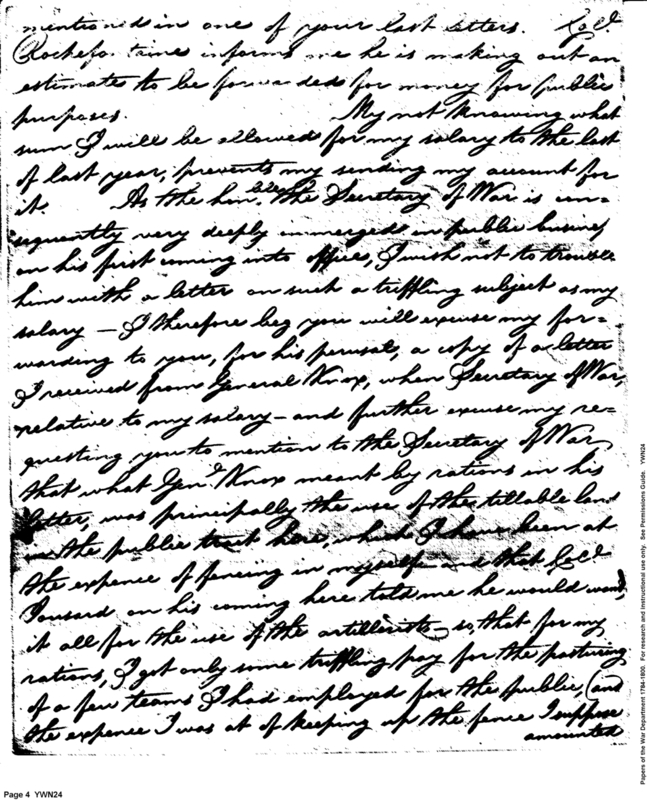 mentioned in one of your last letters. Col.
Rochefontaine informs me he is making out an
estimates to be forwarded for money for public
purposes. My not knowing what
sum I will be allowed for my salary to the last
of last year, prevents my sending my account for
it. As the hon.ble the Secretary of War is con=
sequently very deeply immerged in public business
on his first coming into office, I wish not to trouble
him with a letter on such a triffling subject as my
salary — I therefore beg you will excuse my for=
warding to you, for his perusal, a copy of a letter
I received from General Knox, when Secretary of War,
relative to my salary — and further excuse my re=
questing you to mention to the Secretary of War
that what Gen.l Knox meant by rations in his
letter, was principally the use of the tillable land
on the public tract here, which I have been at
the expence of fencing in myself and that Col.
Tousard on his coming here told me he would want
it all for the use of the artillerists — so, that for my
rations, I got only some triffling pay for the pasturing
of a few teams I had employed for the public, (and
the expence I was at of keeping up the fence I suppose
amounted
Page 4 YWN24
Papers of the War Department 1784-1800. For research and instructional use only. See Permissions Guide. YWN24